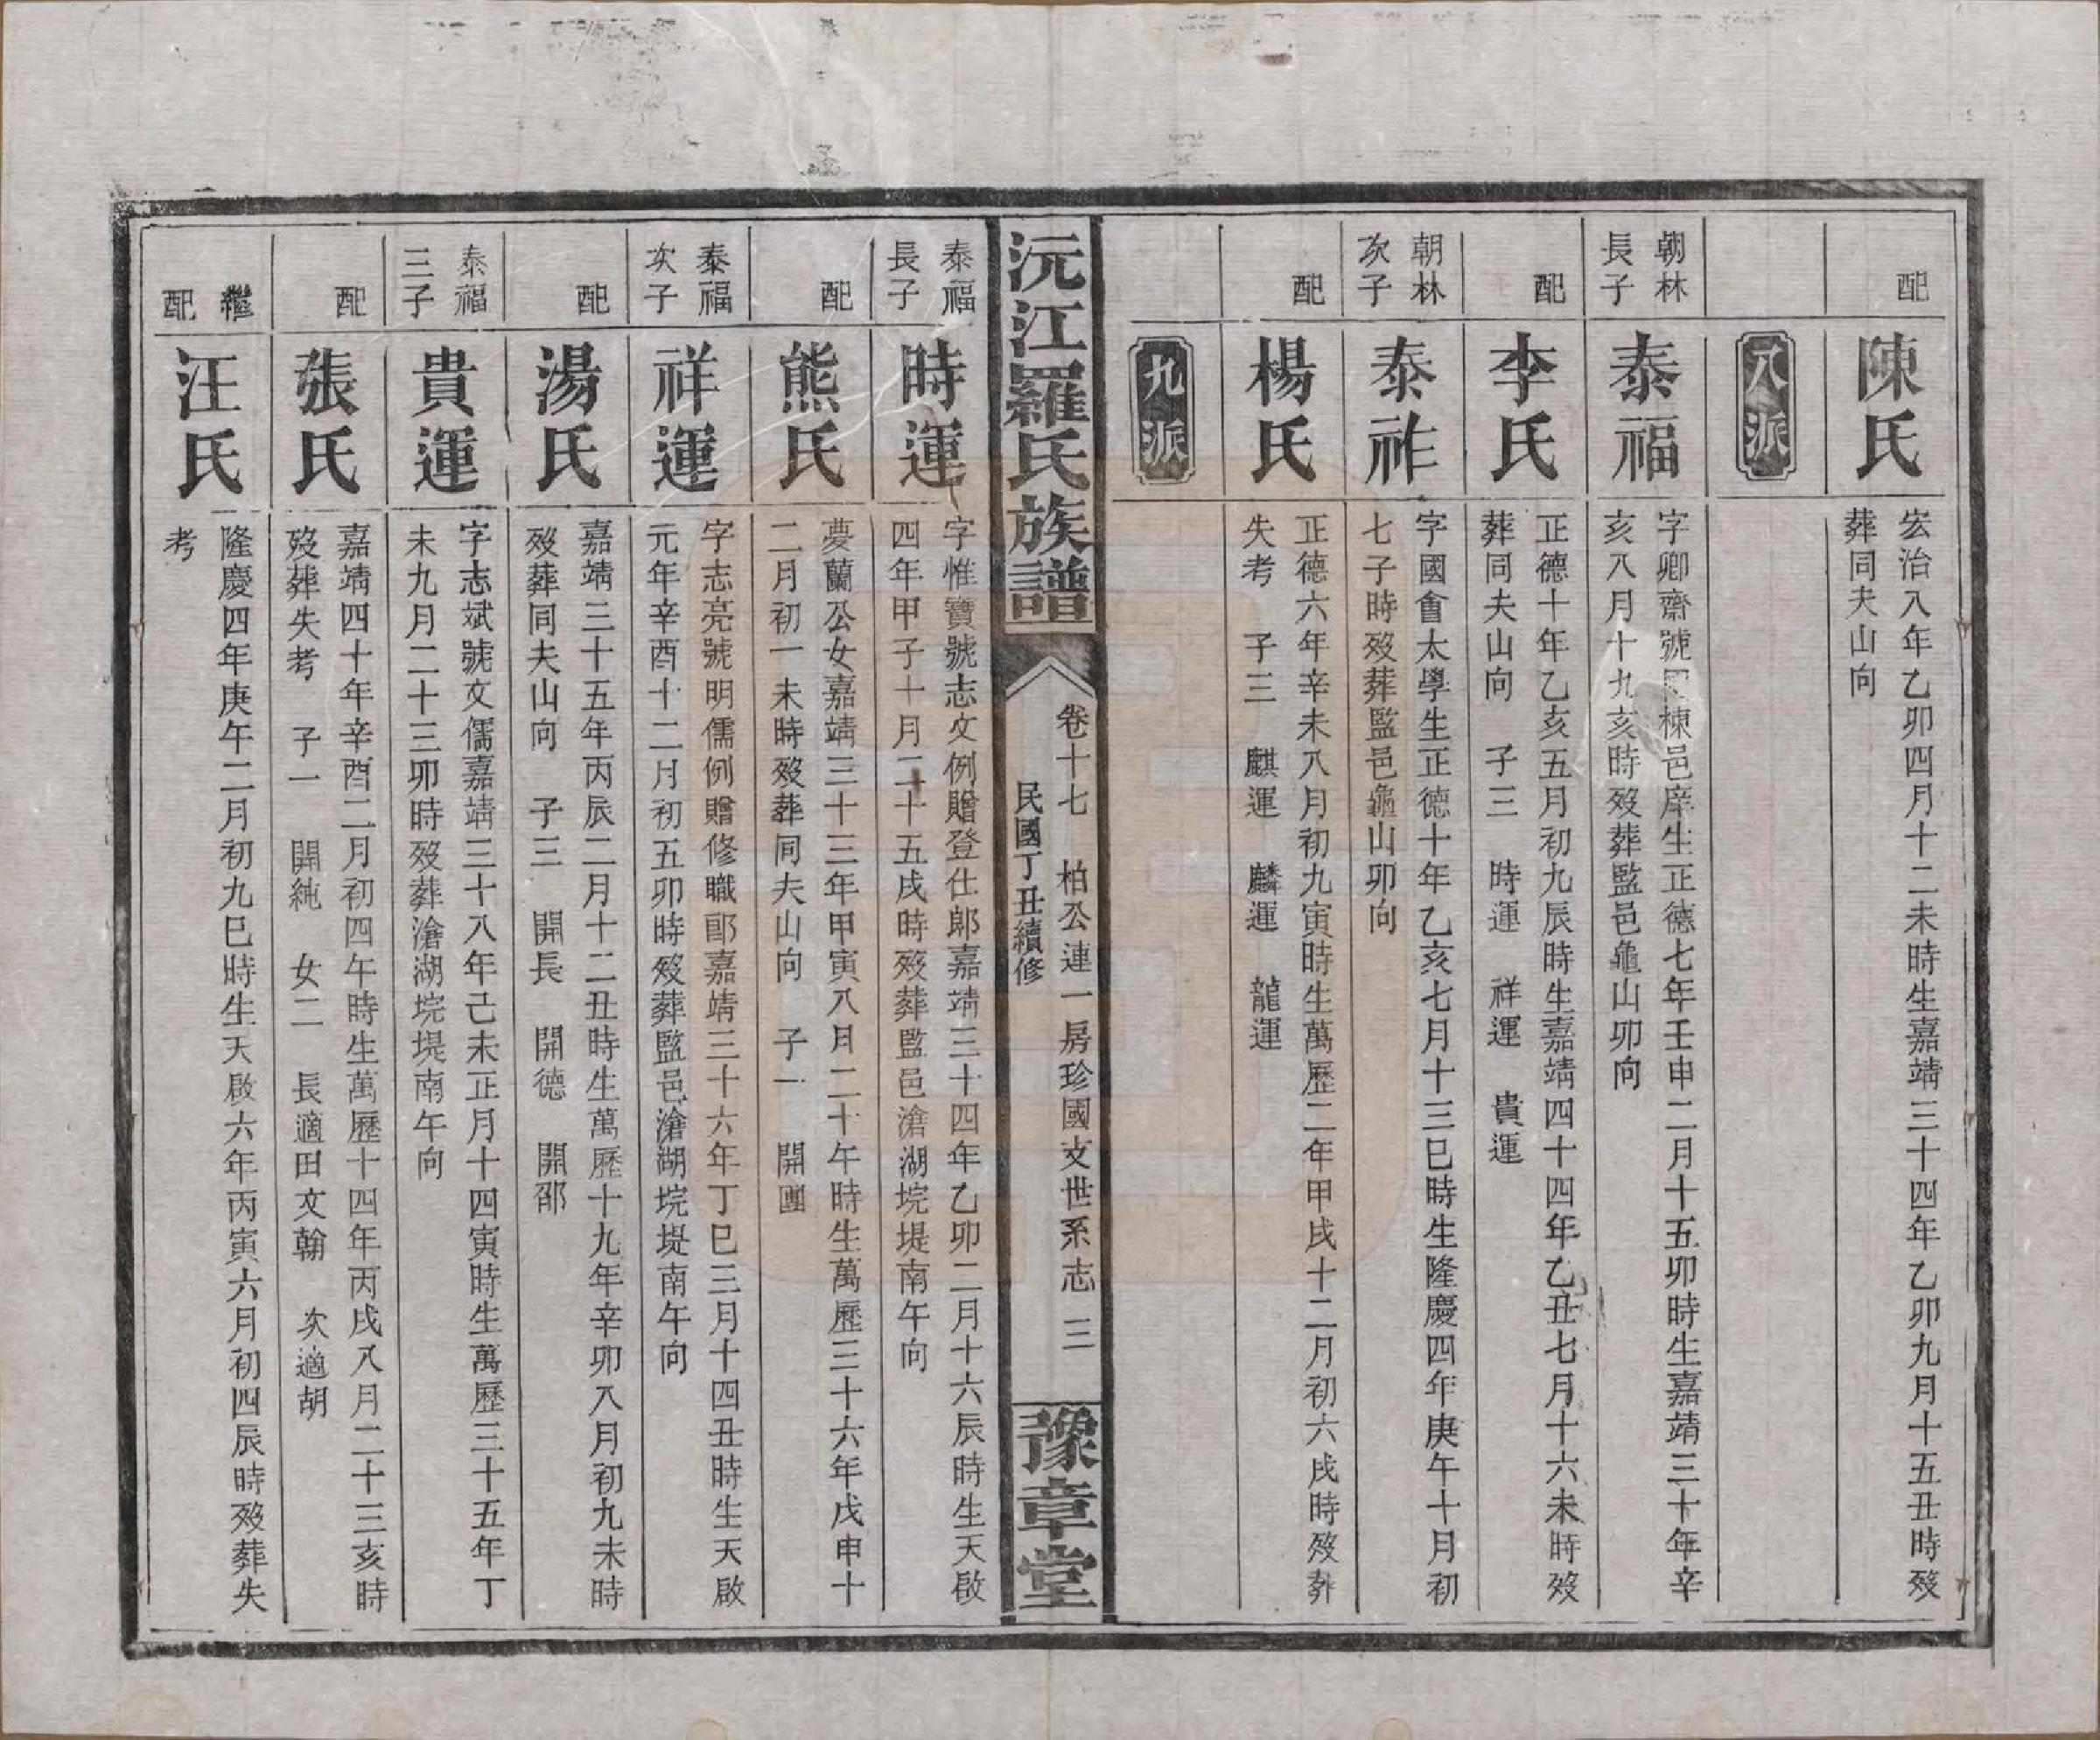 配
陳氏
宏治八年乙卯四月十二未時生嘉靖三十四年乙卯九月十五丑時歿
葬同夫山向
八派
朝林
長子
泰福
字卿齋號棟邑庠生正德七年壬申二月十五卯時生嘉靖三十年辛
亥八月十九亥時歿葬監邑龜山卯向
配
李氏
正德十年乙亥五月初九辰時生嘉靖四十四年乙丑七月十六未時歿
葬同夫山向 子三 時運 祥運 貴運
朝林
次子
泰祚
字國會太學生正德十年乙亥七月十三巳時生隆慶四年庚午十月初
七子時歿葬監邑龜山卯向
配
楊氏
正德六年辛未八月初九寅時生萬歷二年甲戌十二月初六戌時歿葬
失考 子三 麒運 麟運 龍運
九派
沅江羅氏族譜
卷十七 柏公連一房珍國支世系志 三
民國丁丑續修
豫章堂
泰福
長子
時運
字惟寶號志文例贈登仕郎嘉靖三十四年乙卯二月十六辰時生天啟
四年甲子十月二十五戌時歿葬監邑滄湖垸堤南午向
配
熊氏
夢蘭公女嘉靖三十三年甲寅八月二十午時生萬歷三十六年戊申十
二月初一未時歿葬同夫山向 子一 開團
泰福
次子
祥運
字志亮號明儒例贈修職郎嘉靖三十六年丁巳三月十四丑時生天啟
元年辛酉十二月初五卯時歿葬監邑滄湖垸堤南午向
配
湯氏
嘉靖三十五年丙辰二月十二丑時生萬歷十九年辛卯八月初九未時
歿葬同夫山向 子三 開長 開德 開邵
泰福
三子
貴運
字志斌號文儒嘉靖三十八年己未正月十四寅時生萬歷三十五年丁
未九月二十三卯時歿葬滄湖垸堤南午向
配
張氏
嘉靖四十年辛酉二月初四午時生萬歷十四年丙戌八月二十三亥時
歿葬失考 子一 開純 女二 長適田文翰 次適胡
繼
配
汪氏
隆慶四年庚午二月初九巳時生天啟六年丙寅六月初四辰時歿葬失
考